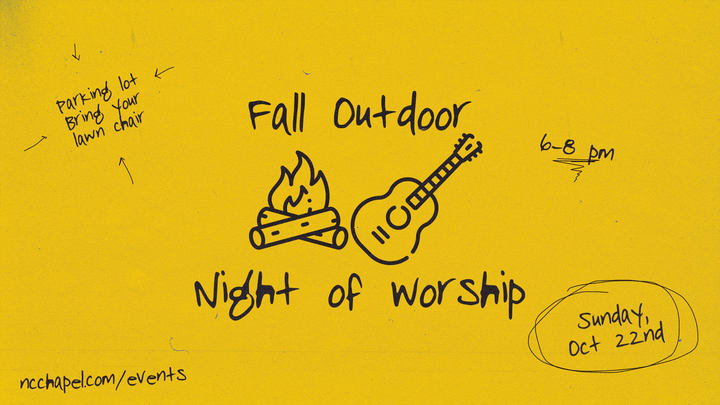 Parking lot
Bring your
lawn chair
Fall Outdoor
6-8 pm
Night of Worship
Sunday,
Oct 22nd
ncchapel.com/events